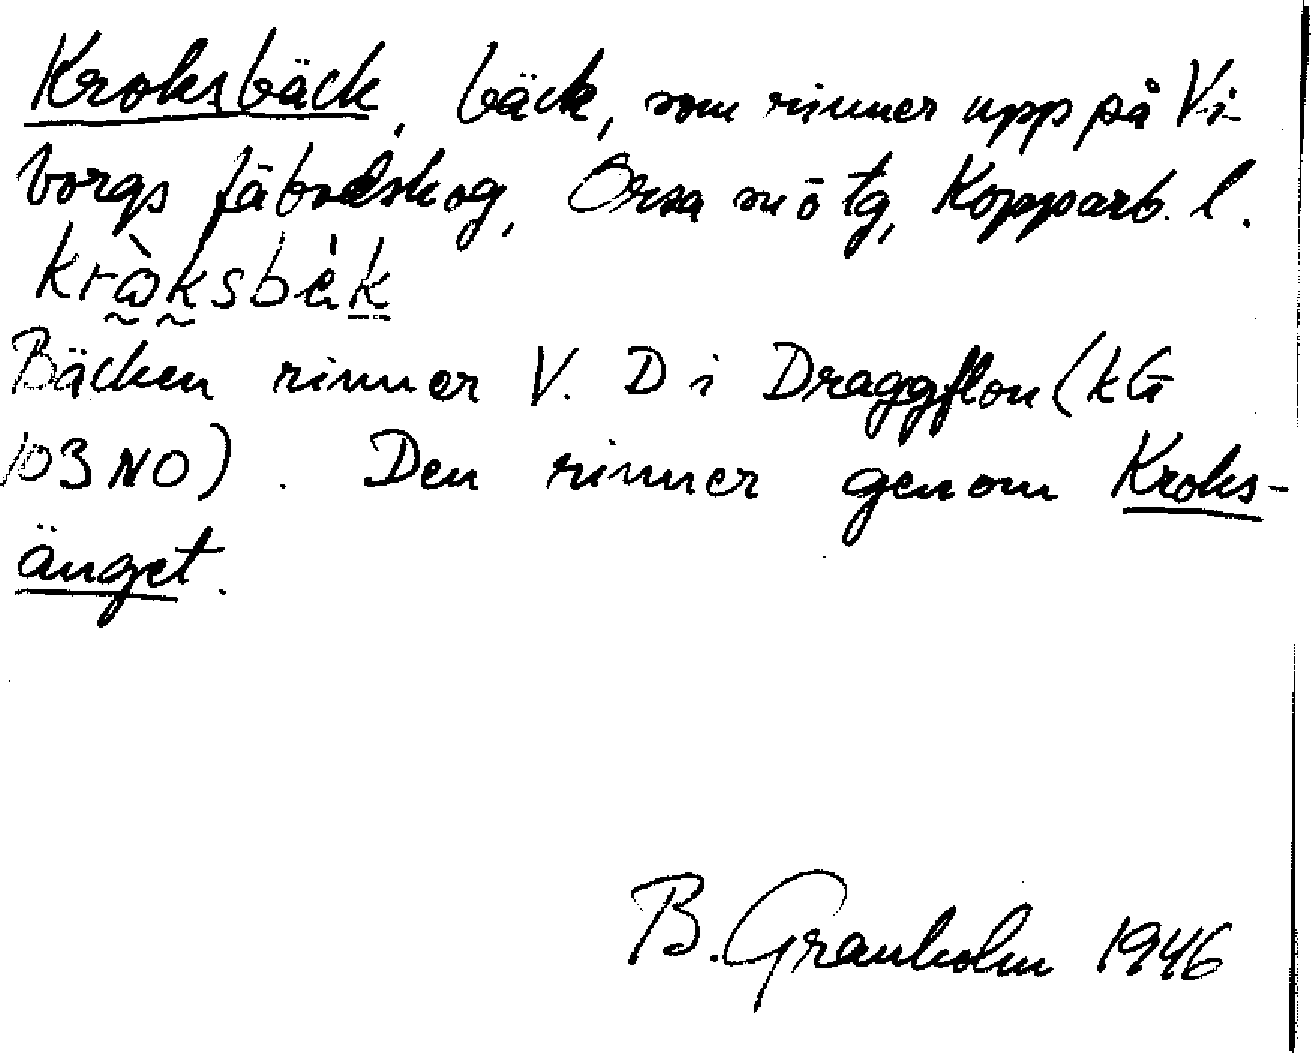 Kroksbäck, bäck, som rinner upp på Vi-
borgs fäbodskog, Orsa sn ö tg, Kopparb. l.
Bäcken rinner V. D i Draggflon (kG
103 NO). Den rinner genom Kroks-
änget.
B. Granholm 1946